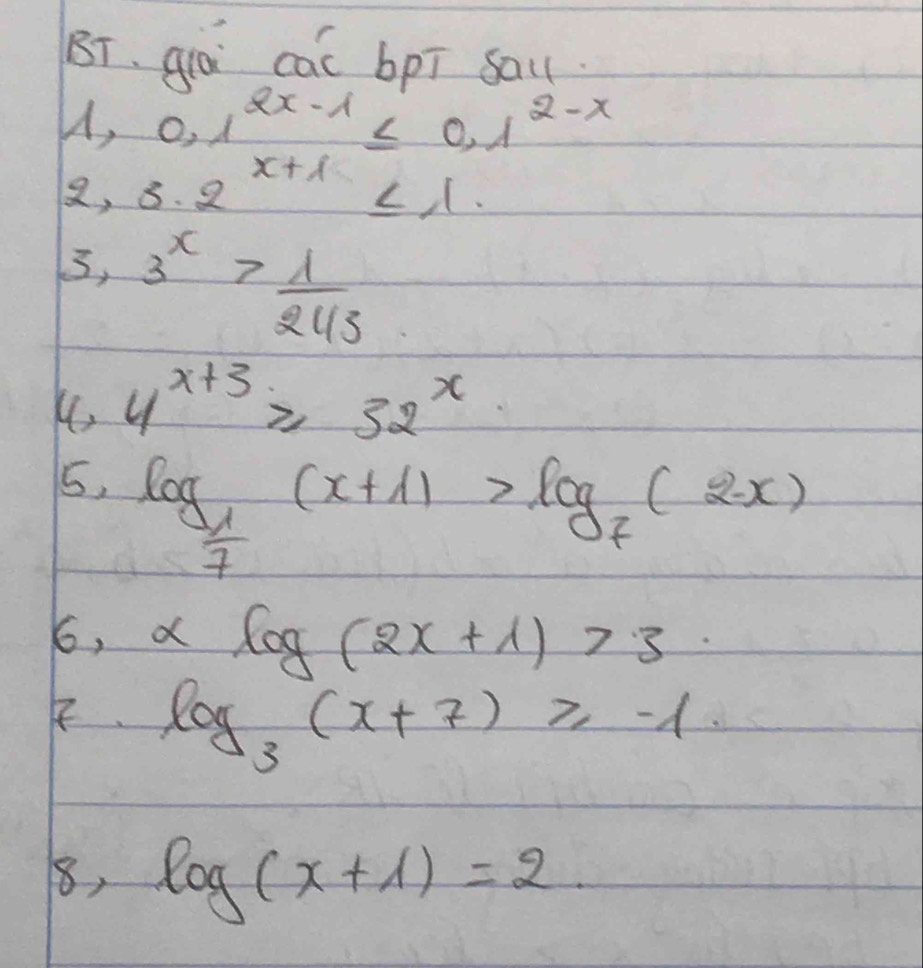 BT. giải các bpT sau.
1, 0,1^{2x-1} ≤ 0,1^{2-x}
2, 3.2^{x+1} ≤ 1.
3, 3^x > \frac{1}{243}.
4, 4^{x+3} ≥ 32^x.
5, log_{\frac{1}{7}} (x+1) > log_7 (2-x)
6, α log (2x+1) > 3.
7. log_3 (x+7) ≥ -1.
8, log (x+1) = 2.